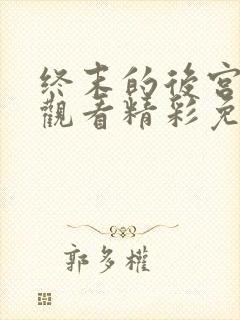 終末的後宮
觀看精彩免
郭多權